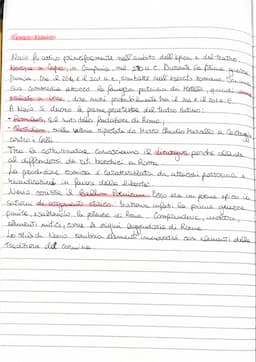 Gneo Nevio
Nevio fu attivo principalmente nell'ambito dell'epica e del teatro.
Nacque a Capua, in Campania, nel a.C. Durante la prima guerra
punica, tra il 264 e il 241 a.C., combatté nell'esercito romano. In
sua commedia attaccò la famiglia patrizia dei Metelli, quindi
esiliato a, dove morì probabilmente tra il 204 e il 201 a.C.
A Nevio si devono le prime pretestae del teatro latino:
- Romulus, sul mito della fondazione di Roma;
- Clastidium, sulla vittoria riportata da Marco Claudio Marcello a Casteggio
contro i Galli.
Tra le cothurnatae, conosciamo il Lycurgus perché allude
al diffondersi dei riti bacchici a Roma.
La produzione comica è caratterizzata da attacchi personali e
rivendicazioni in favore della libertà.
Nevio scrisse il Bellum Poenicum. Esso era un poema epico in
saturni di argomento storico: trattava infatti la prima guerra
punica, esaltando la potenza di Roma. Comprendeva, inoltre,
elementi mitici, come le origini leggendarie di Roma.
Lo stile di Nevio combina elementi innovativi con elementi della
tradizione del carmen.